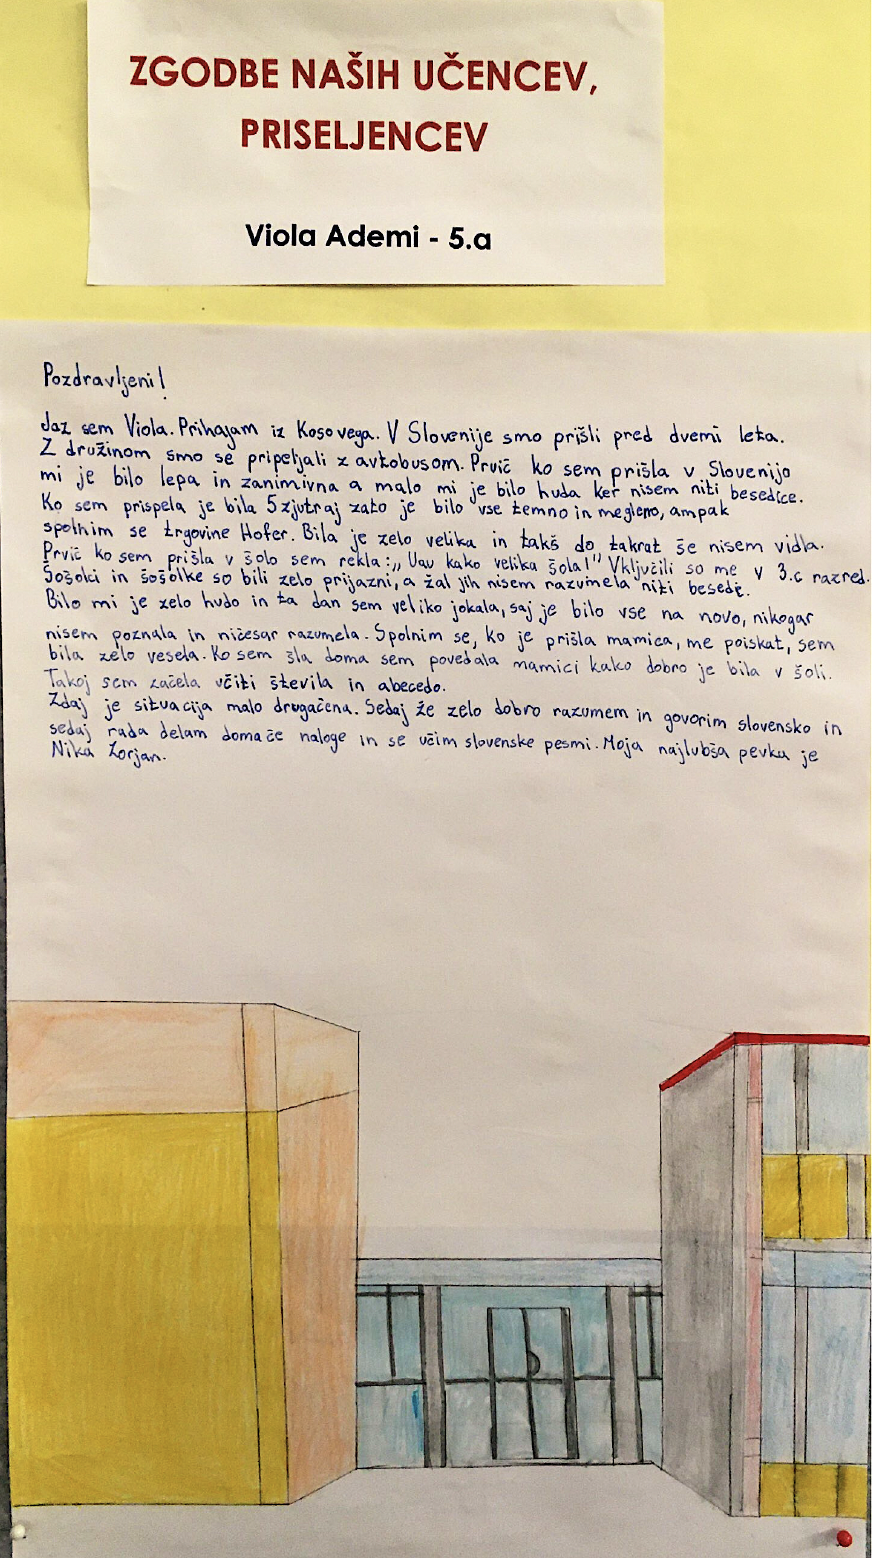 ZGODBE NAŠIH UČENCEV,
PRISELJENCEV
Viola Ademi - 5.a
Pozdravljeni!
Jaz sem Viola. Prihajam iz Kosovega. V Slovenije smo prišli pred dvemi leta.
Z družinom smo se pripeljali z avtobusom. Prvič ko sem prišla v Slovenijo
mi je bilo lepa in zanimivna a malo mi je bilo huda ker nisem niti besedice.
Ko sem prispela je bila 5 zjutraj zato je bilo vse temno in megleno, ampak
spolnim se trgovine Hofer. Bila je zelo velika in takš do takrat še nisem vidla.
Prvič ko sem prišla v šolo sem rekla: „Uau kako velika šola!" Vključili so me v 3.c razred.
Sošolci in sošolke so bili zelo prijazni, a žal jih nisem razumela niti besede.
Bilo mi je zelo hudo in ta dan sem veliko jokala, saj je bilo vse na novo, nikogar
nisem poznala in ničesar razumela. Spolnim se, ko je prišla mamica, me poiskat, sem
bila zelo vesela. Ko sem šla doma sem povedala mamici kako dobro je bila v šoli.
Takoj sem začela učiti števila in abecedo.
Zdaj je situacija malo drugačena. Sedaj že zelo dobro razumem in govorim slovensko in
sedaj rada delam domače naloge in se učim slovenske pesmi. Moja najlubša pevka je
Nika Zorjan.